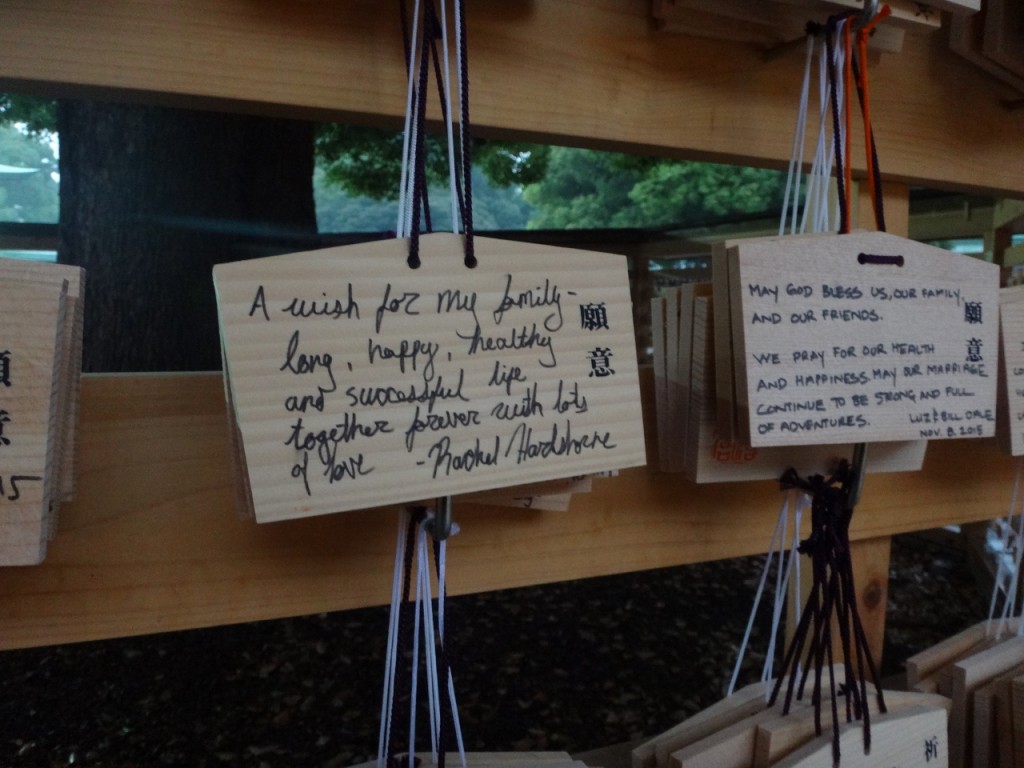 A wish for my family -
long, happy, healthy
and successful life
together forever with lots
of love - Rachel Hardshorne
願意
MAY GOD BLESS US, OUR FAMILY,
AND OUR FRIENDS.
WE PRAY FOR OUR HEALTH
AND HAPPINESS. MAY OUR MARRIAGE
CONTINUE TO BE STRONG AND FULL
OF ADVENTURES.
LUZ & BILL DALE
NOV. 8. 2015
願意
願意
15
祈